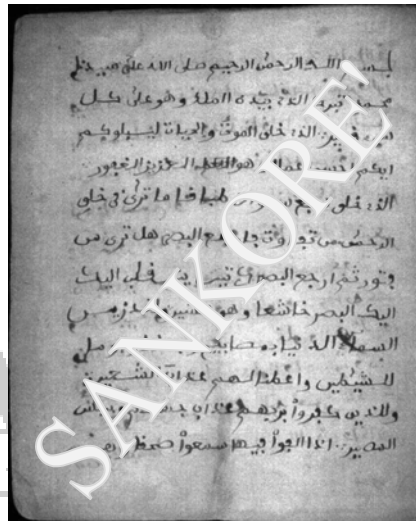 بسم الله الرحمن الرحيم صلى الله على من
محمد تبرك الذي بيده الملك وهو على كل
شيء قدير الذي خلق الموت والحياة ليبلوكم
ايكم احسن عملا وهو العزيز الغفور
الذي خلق سبع طباقا ما ترى في خلق
الرحمن من تفاوت فارجع البصر هل ترى من
فطور ثم ارجع البصر كرتين ينقلب اليك
اليك البصر خاسئا وهو حسير
السماء الدنيا بمصابيح
للشيطين واعتدنا لهم عذاب السعير
وللذين كفروا بربهم عذاب جهنم وبئس
المصير اذا القوا فيها سمعوا
SANKORE'